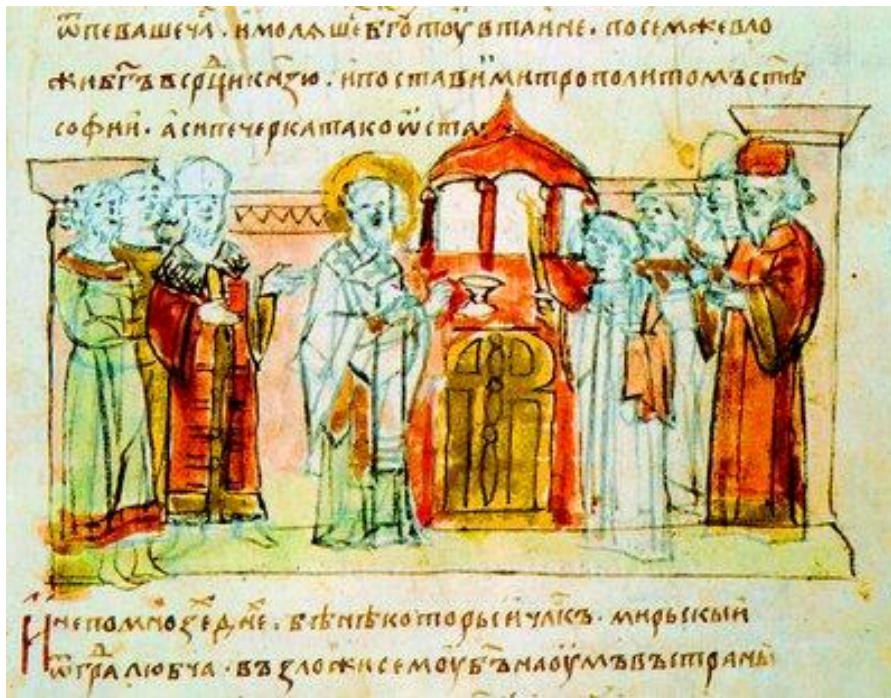 ѿпевашечл҃. и҆молѧшебг҃готоувтаине. посемжевло
живг҃ъвсрдⷣцикнѧ҃зю. і҆поставиⷨмитрополитомъст҃ѣ
софии. асипечеркатакоѿста
Инепомноⷥхеⷣдн҃е. бѣнѣкоторыи҆чл҃къ. мирьскыи
ѿграⷣлюбча. възложисемоубг҃ънаоумъвъстраны